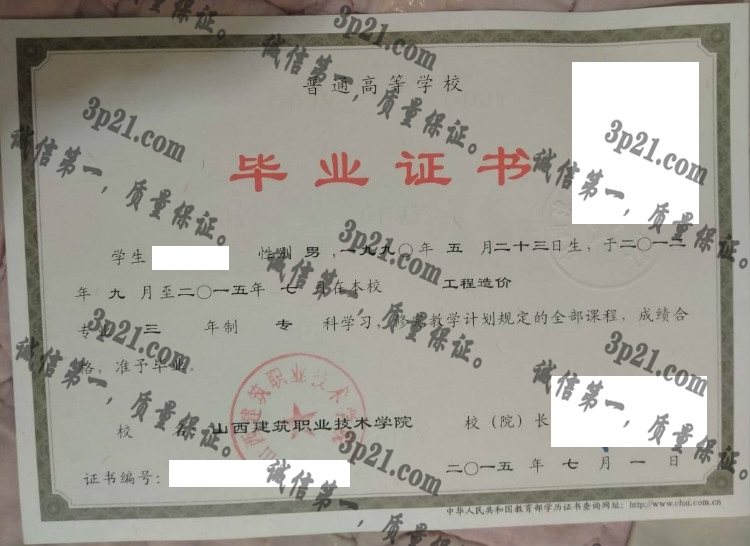 普通高等学校
毕业证书
学生 性别 男 ,一九九〇年 五 月二十三日生，于二〇一二
年 九 月至二〇一五年 七 月在本校 工程造价
专业 三 年制 专 科学习，修完教学计划规定的全部课程，成绩合
格，准予毕业。
校 名 山西建筑职业技术学院 校（院）长
山西建筑职业技术学院
证书编号： 二〇一五 年 七 月 一 日
中华人民共和国教育部学历证书查询网址：http://www.chsi.com.cn
3p21.com
诚信第一，质量保证。
3p21.com
诚信第一，质量保证。
3p21.com
诚信第一，质量保证。
3p21.com
诚信第一，质量保证。
3p21.com
诚信第一，质量保证。
3p21.com
诚信第一，质量保证。
3p21.com
诚信第一，质量保证。
3p21.com
诚信第一，质量保证。
3p21.com
诚信第一，质量保证。